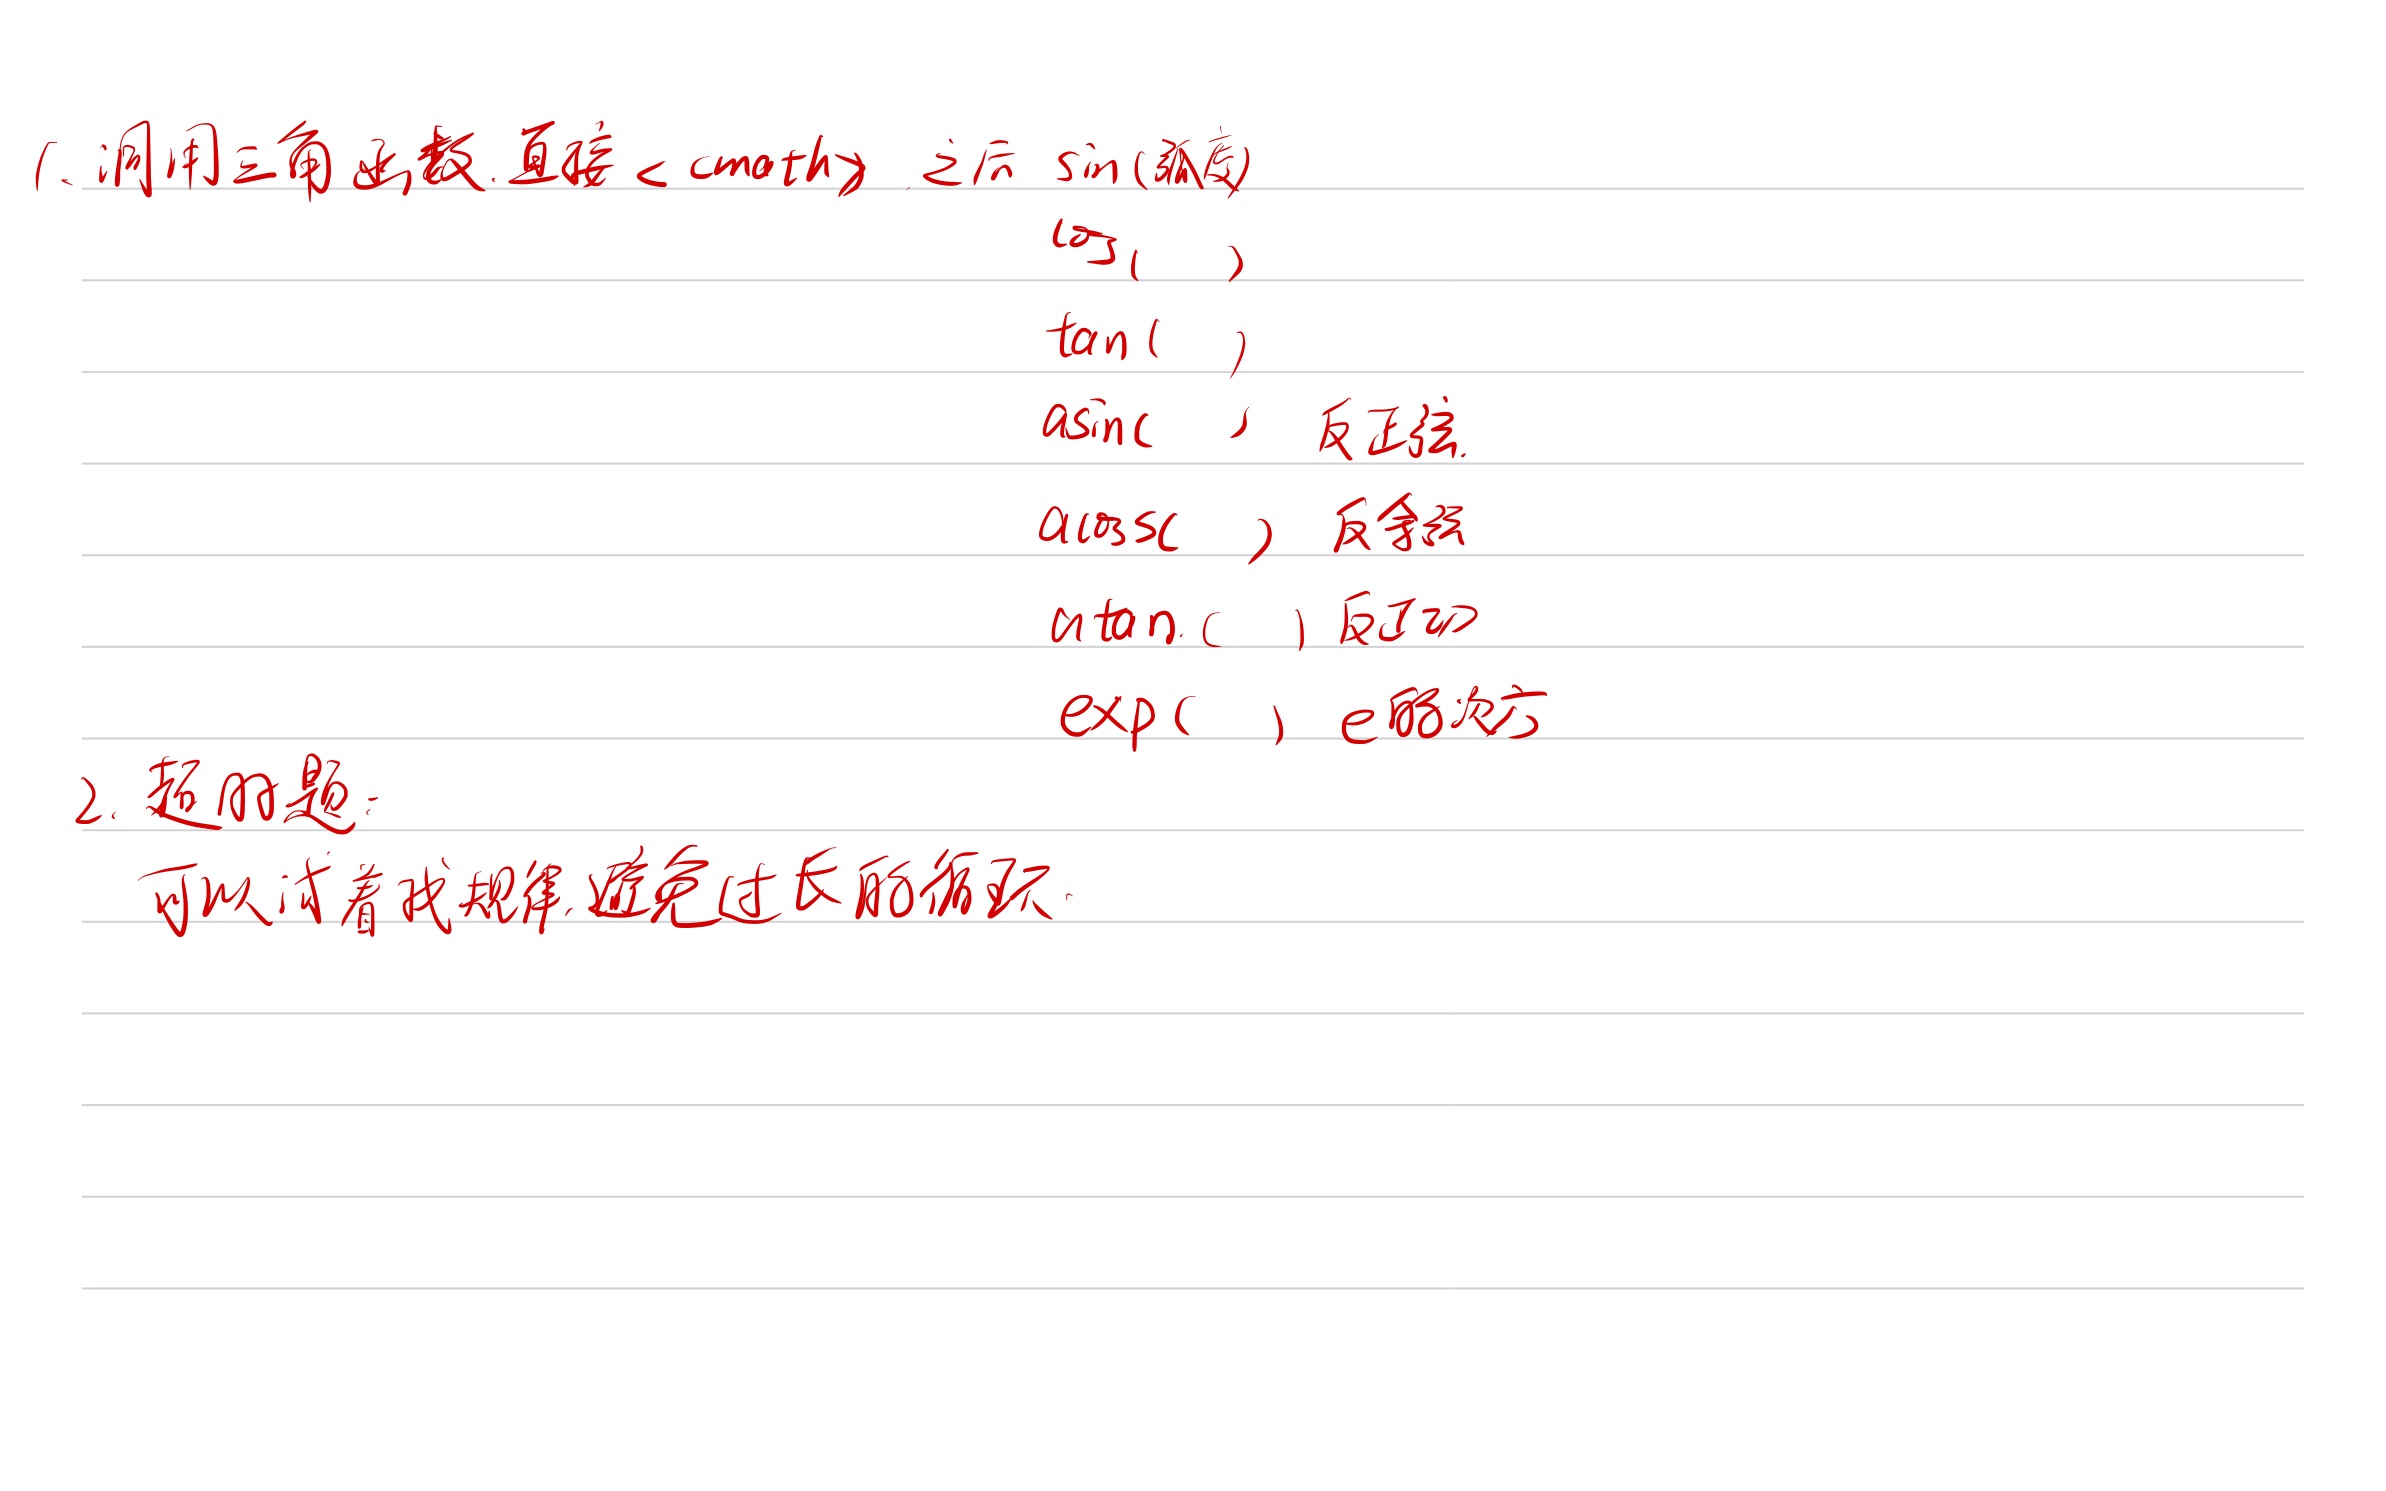 1、调用三角函数.直接<cmath>,之后 sin(弧度)
cos( )
tan( )
asin( ) 反正弦.
acos( ) 反余弦
atan.( ) 反正切
exp( ) e的次方
2. 超时题:
可以试着找规律.避免过长的循环.